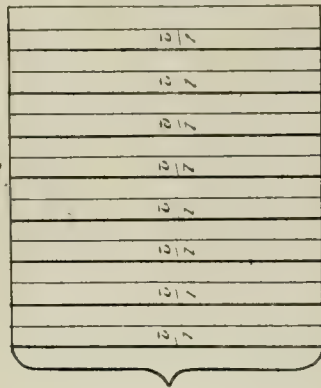 ½
½
½
½
½
½
½
½